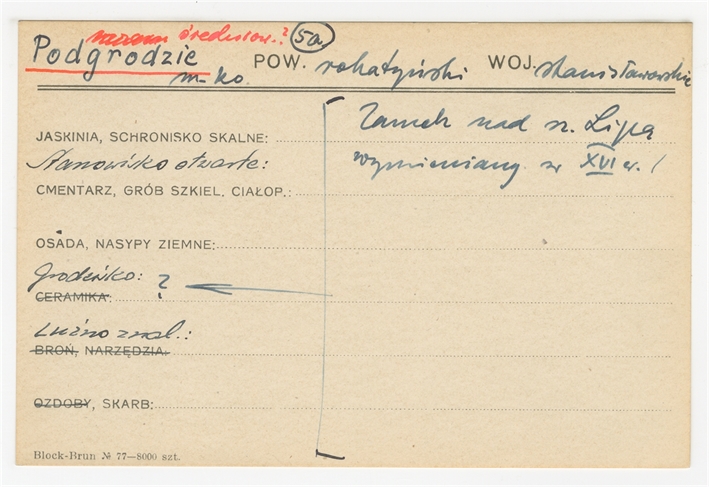 średniow.? 5a
Podgrodzie POW. rohatyński WOJ. stanisławowskie
m-ko.
Zamek nad rz. Lipą
JASKINIA, SCHRONISKO SKALNE:
Stanowisko otwarte: wymieniany w XVI w. /
CMENTARZ, GRÓB SZKIEL. CIAŁOP.:
OSADA, NASYPY ZIEMNE:
Grodzisko: ?
CERAMIKA:
Luźno znal.:
BROŃ, NARZĘDZIA:
OZDOBY, SKARB:
Block-Brun № 77—8000 szt.